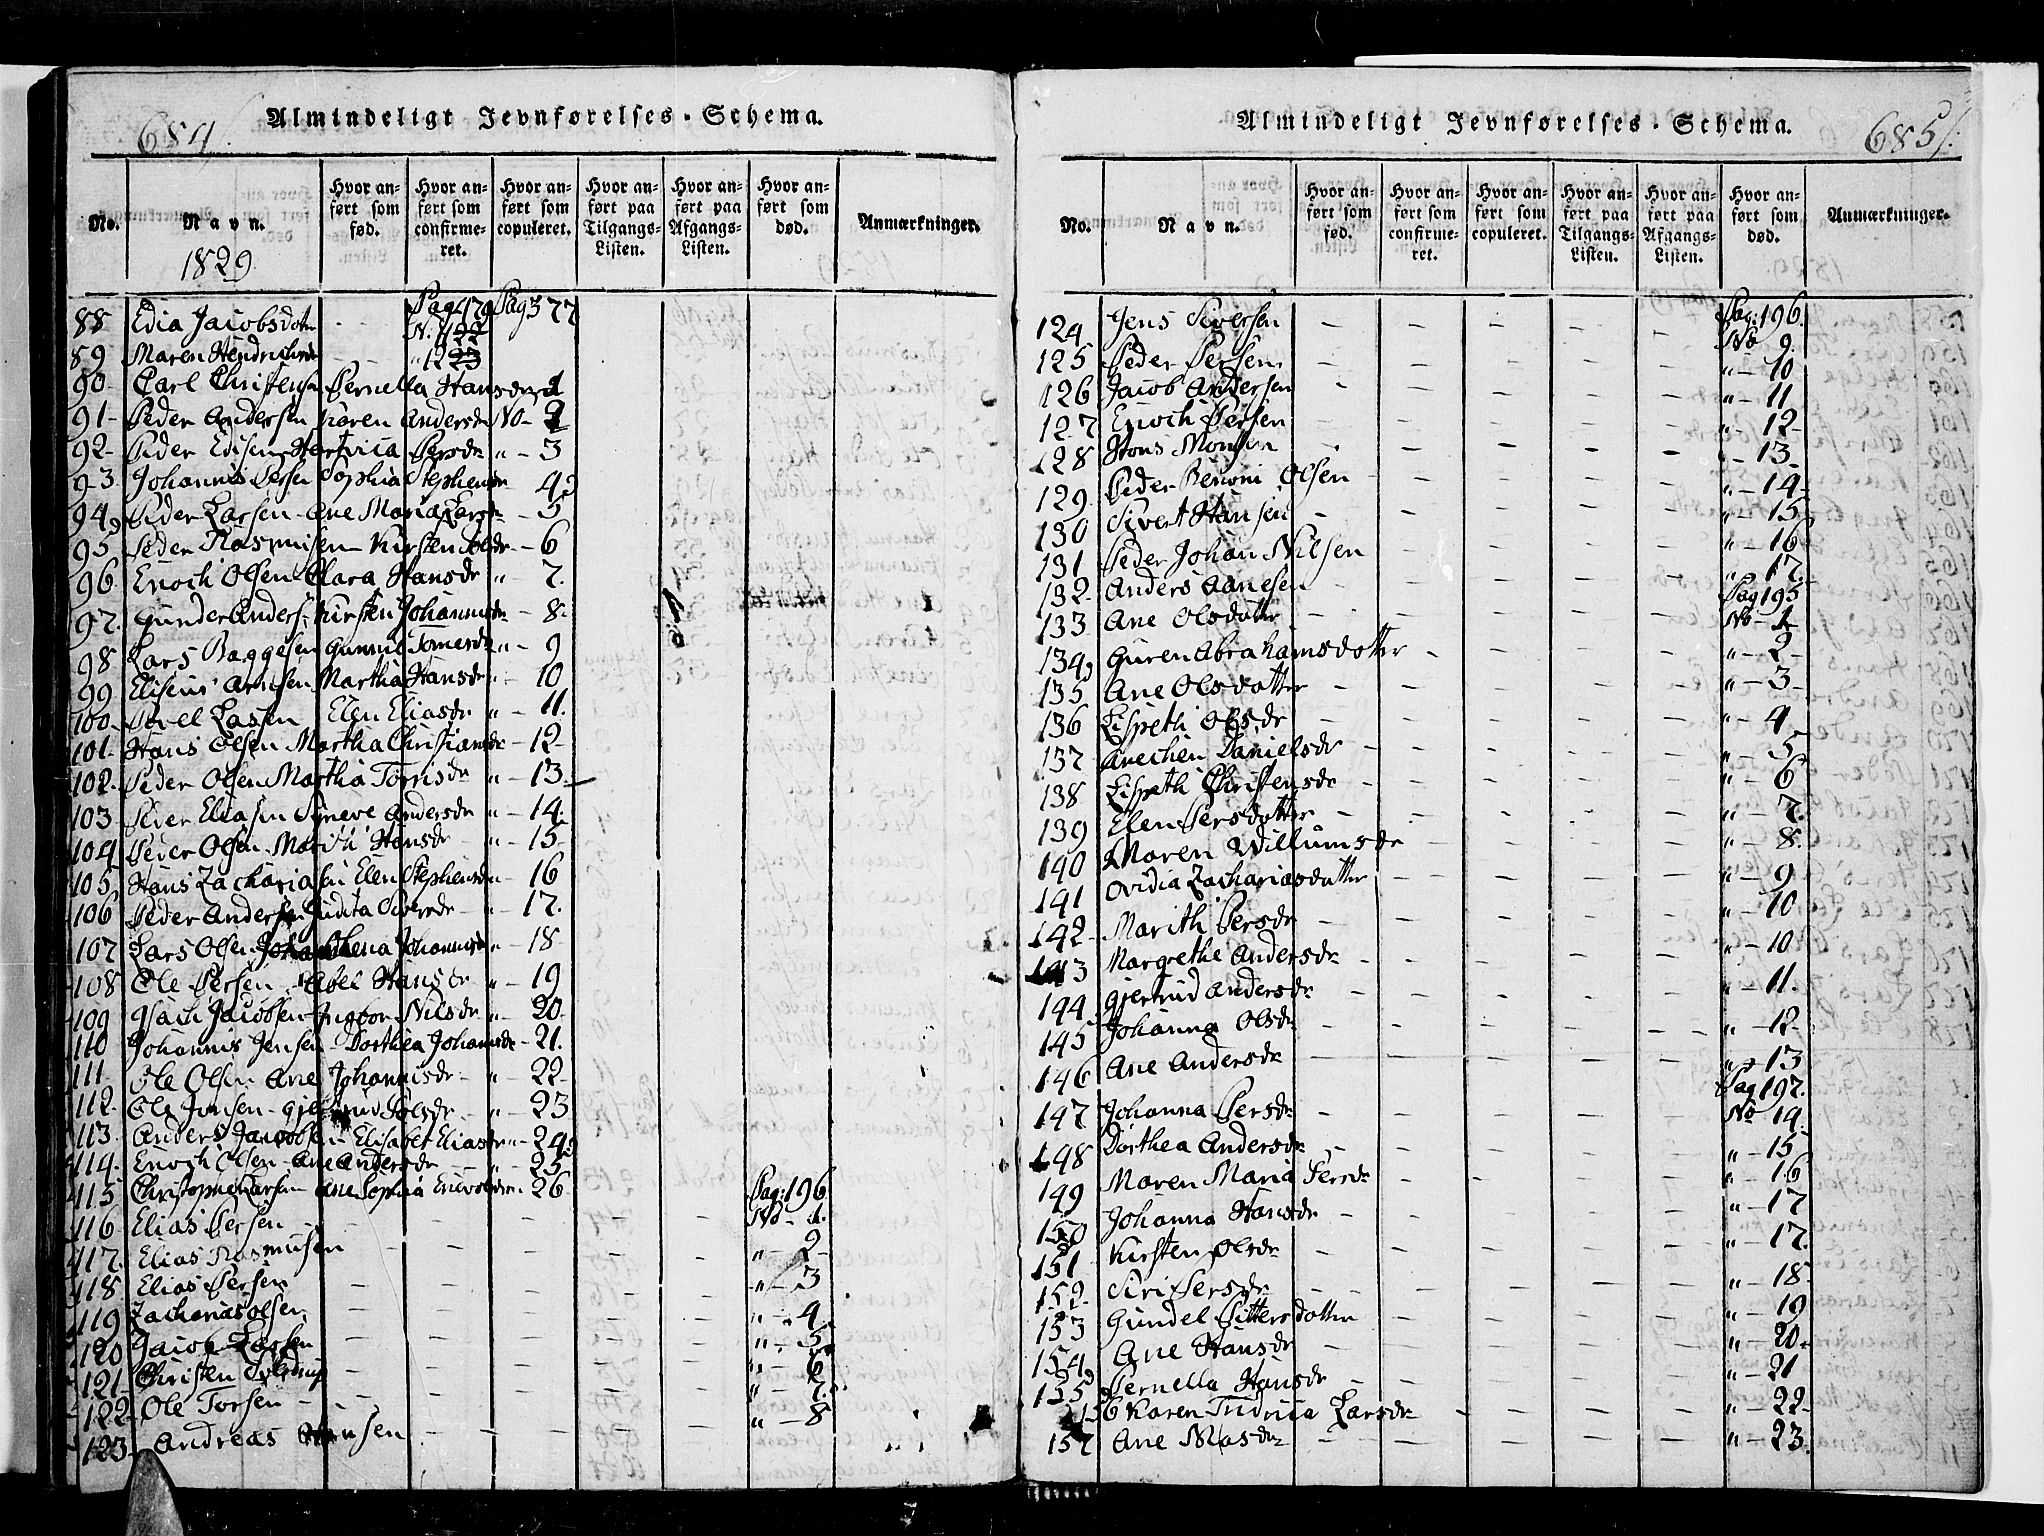 684
Almindeligt Jevnførelses-Schema.
No.
Navn.
Hvor anført som fød.
Hvor anført som confirmeret.
Hvor anført som copuleret.
Hvor anført paa Tilgangs-Listen.
Hvor anført paa Afgangs-Listen.
Hvor anført som død.
Anmærkninger.
1829
88 Edia Jacobsdotter Pag: 479 No 122 Pag 377
89 Maren Hendrichsdr " 123
90 Carl Christensen Pernella Hansdr 1
91 Peder Andersen Karen Andersdr No 2
92 Peder Edisen Hartvica Persdr " 3
93 Johannis Persen Sophia Stephensdr 4
94 Peder Larsen Ane Maria Larsdr 5
95 Peder Rasmusen Kirsten Polsdr 6
96 Enoch Olsen Clara Hansdr " 7.
97. Gunder Anders: Kirsten Johannisdr 8.
98 Lars Baggesen Gunnil Tomesdr " 9
99 Eliseus Arnsen Martha Hansdr " 10
100 Povel Lassen Elen Eliasdr " 11.
101 Hans Olsen Martha Christiansdr 12
102. Peder Olsen Martha Torrisdr " 13
103 Peder Eliasen Sineve Andersdr " 14
104 Peder Olsen Marith Hansdr " 15
105 Hans Zachariasen Elen Stephensdr 16
106 Peder Andersen Judita Siversdr " 17.
107 Lars Olsen Johannisdr " 18
108 Ole Persen Abel Hansdr " 19
109 Isach Jacobsen Ingbor Nilsdr " 20
110 Johannis Jensen Dorthea Johansdr 21.
111 Ole Olsen Ane Johannisdr " 22
112. Ole Jonsen Gjertrud Polsdr " 23
113. Anders Jacobsen Elisabet Eliasdr " 24
114. Enoch Olsen Ane Andersdr 25
115 Christopher Larsen Ane Sophia Enevoldsdr 26
116 Elias Persen Pag: 196 No 1.
117. Elias Rasmusen " 2
118 Elias Persen " 3
119 Zacharias Olsen " 4.
120 Jacob Larsen " 5
121 Christen Tolstrup " 6
122 Ole Torsen " 7.
123 Andreas Hansen " 8
Almindeligt Jevnførelses-Schema.
685
No.
Navn.
Hvor anført som fød.
Hvor anført som confirmeret.
Hvor anført som copuleret.
Hvor anført paa Tilgangs-Listen.
Hvor anført paa Afgangs-Listen.
Hvor anført som død.
Anmærkninger.
124 Jens Siversen Pag: 196. No 9.
125 Peder Persen " 10
126 Jacob Andersen " 11
127 Enoch Persen " 12
128 Hans Monsen " 13
129. Peder Benoni Olsen " 14
130 Sivert Hansen " 15
131 Peder Johan Nilsen " 16
132 Anders Aanesen " 17.
133 Ane Olsdatter Pag 195 No 1
134 Guren Abrahamsdotter " 2
135 Ane Olsdatter " 3
136 Lispeth Olsdr " 4
137 Anechen Danielsdr " 5
138 Lispeth Christensdr " 6
139 Elen Persdotter " 7.
140 Maren Willumsdr " 8.
141 Ovidia Zachariasdatter " 9
142 Marith Persdr " 10
143 Margrethe Andersdr " 10
144 Gjertrud Andersdr " 11.
145 Johanna Olsdr " 12
146 Ane Andersdr " 13
147 Johanna Persdr Pag 197. No 14.
148 Dorthea Andersdr " 15
149 Maren Maria Persdr " 16
150 Johanna Hansdr " 17
151 Kirsten Olsdr " 17.
152 Siri Persdr " 18
153 Gundel Pittersdotter " 19
154 Ane Hansdr " 20
155 Pernella Hansdr " 21
156 Karen Fridrica Larsdr " 22
157 Ane Masdr " 23.